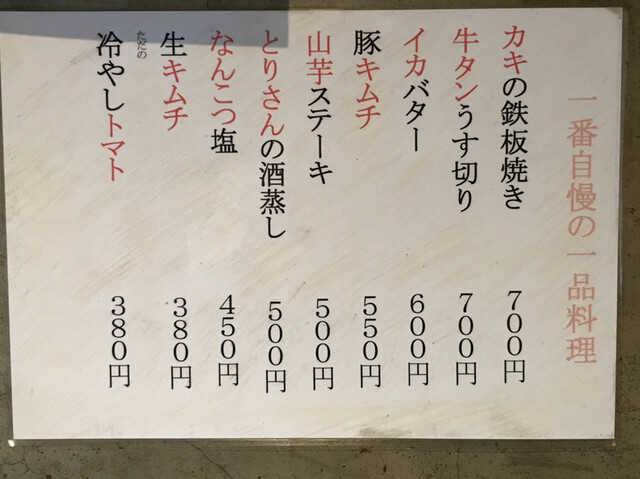 一番自慢の一品料理
カキの鉄板焼き 700円
牛タンうす切り 700円
イカバター 600円
豚キムチ 550円
山芋ステーキ 500円
とりさんの酒蒸し 500円
なんこつ塩 450円
生キムチ 380円
ただの
冷やしトマト 380円